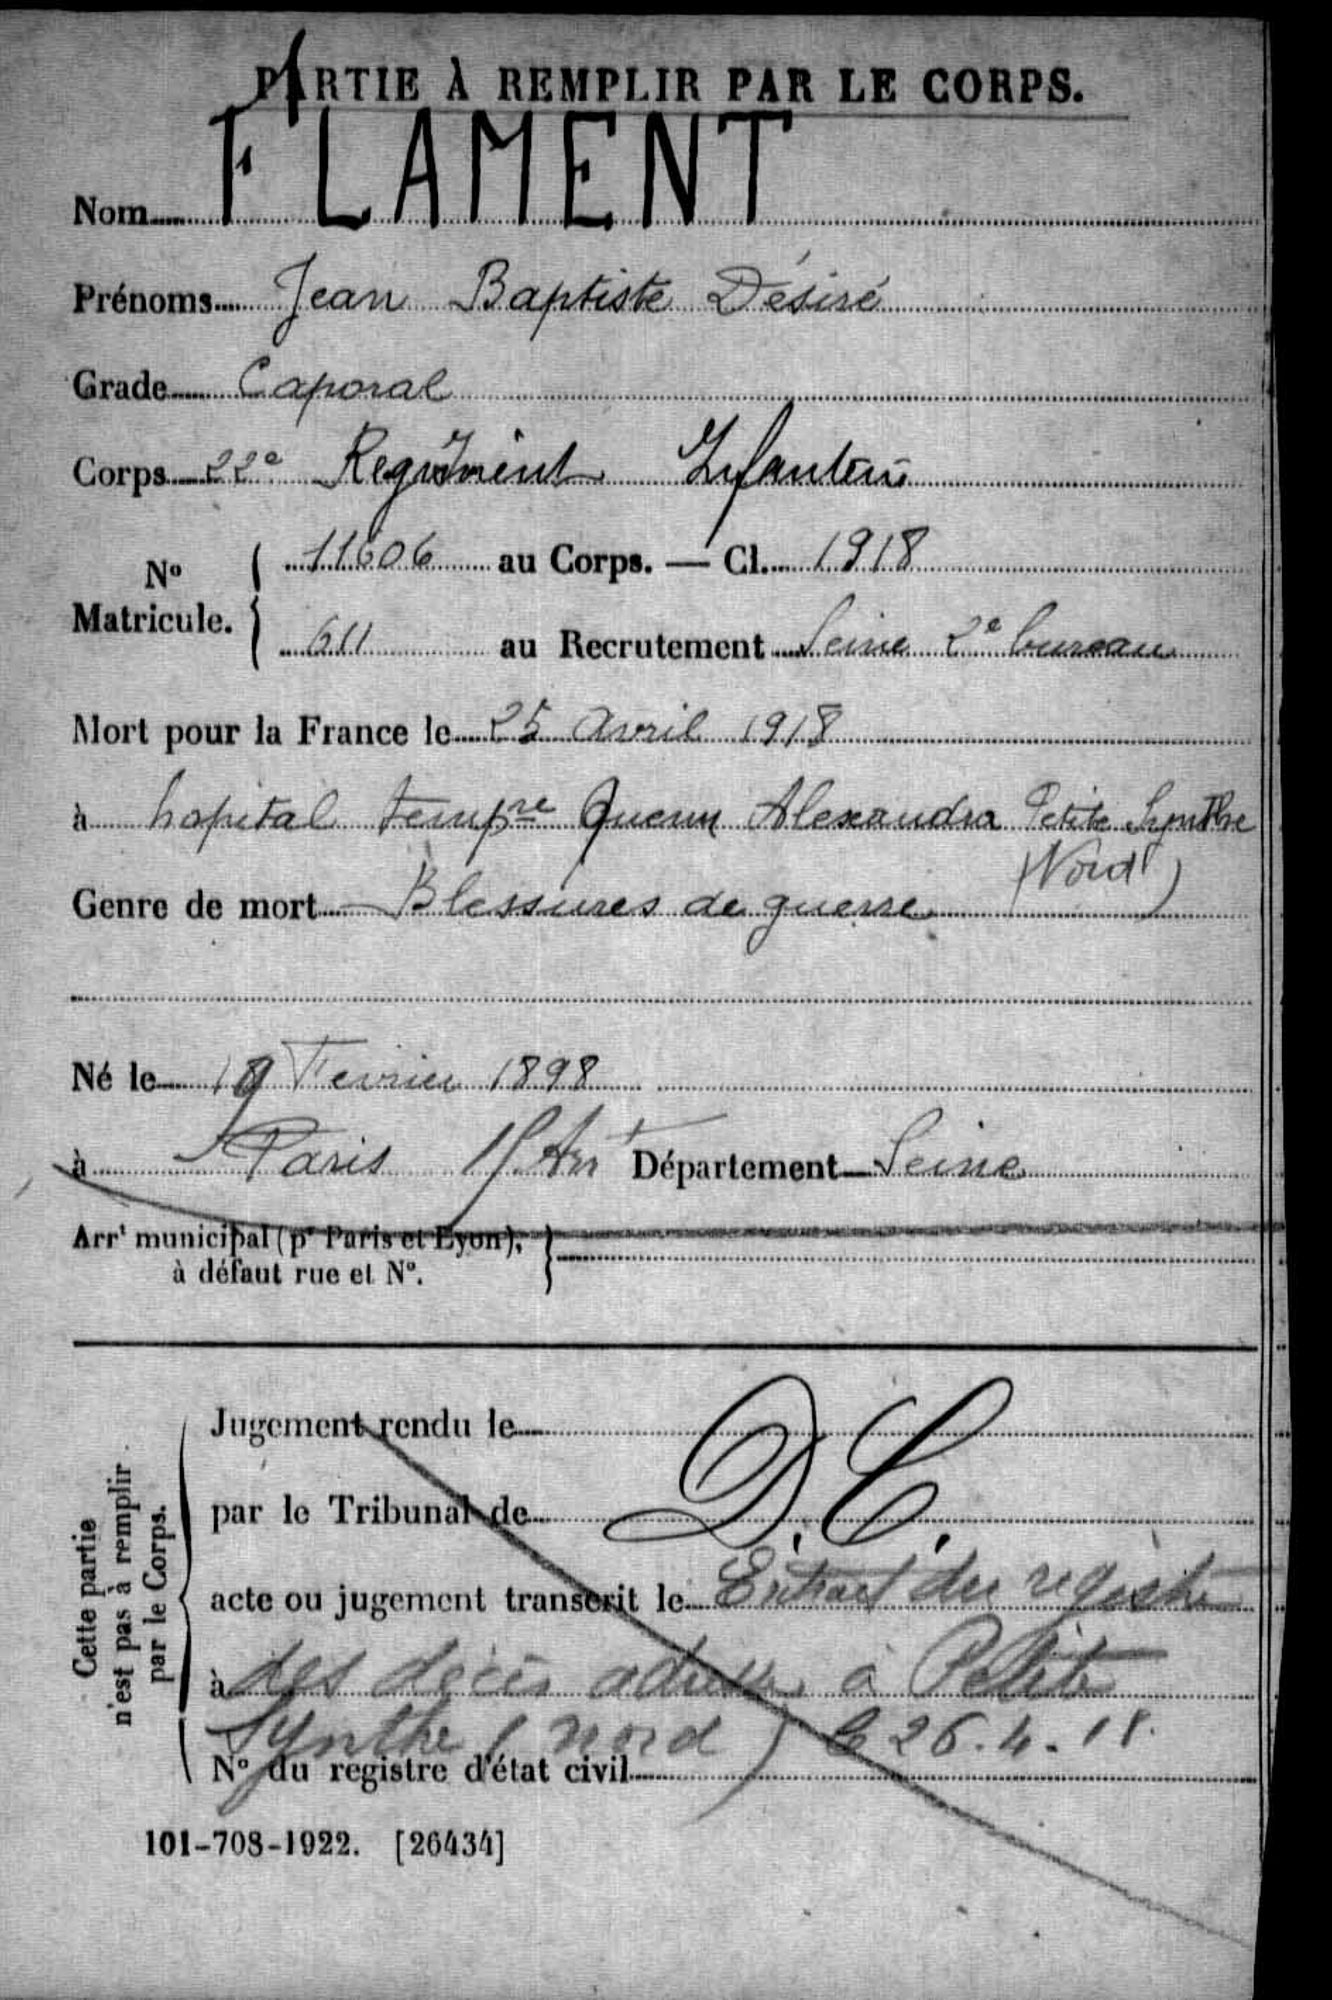 PARTIE À REMPLIR PAR LE CORPS.
Nom FLAMENT
Prénoms Jean Baptiste Désiré
Grade Caporal
Corps 22e Regiment Infanterie
No Matricule. 11606 au Corps. — Cl. 1918
611 au Recrutement Seine 2e bureau
Mort pour la France le 25 avril 1918
à hopital tempre Queen Alexandra Petite Synthe
(Nord)
Genre de mort Blessures de guerre
Né le 19 Fevrier 1898
à Paris Arrt Département Seine
Arrt municipal (pr Paris et Lyon),
à défaut rue et No.
Cette partie
n'est pas à remplir
par le Corps.
Jugement rendu le
par le Tribunal de D.C.
acte ou jugement transcrit le Extrait du registre
à des décès adressé à Petite
Synthe (Nord) le 26.4.18.
No du registre d'état civil
101-708-1922. [26434]